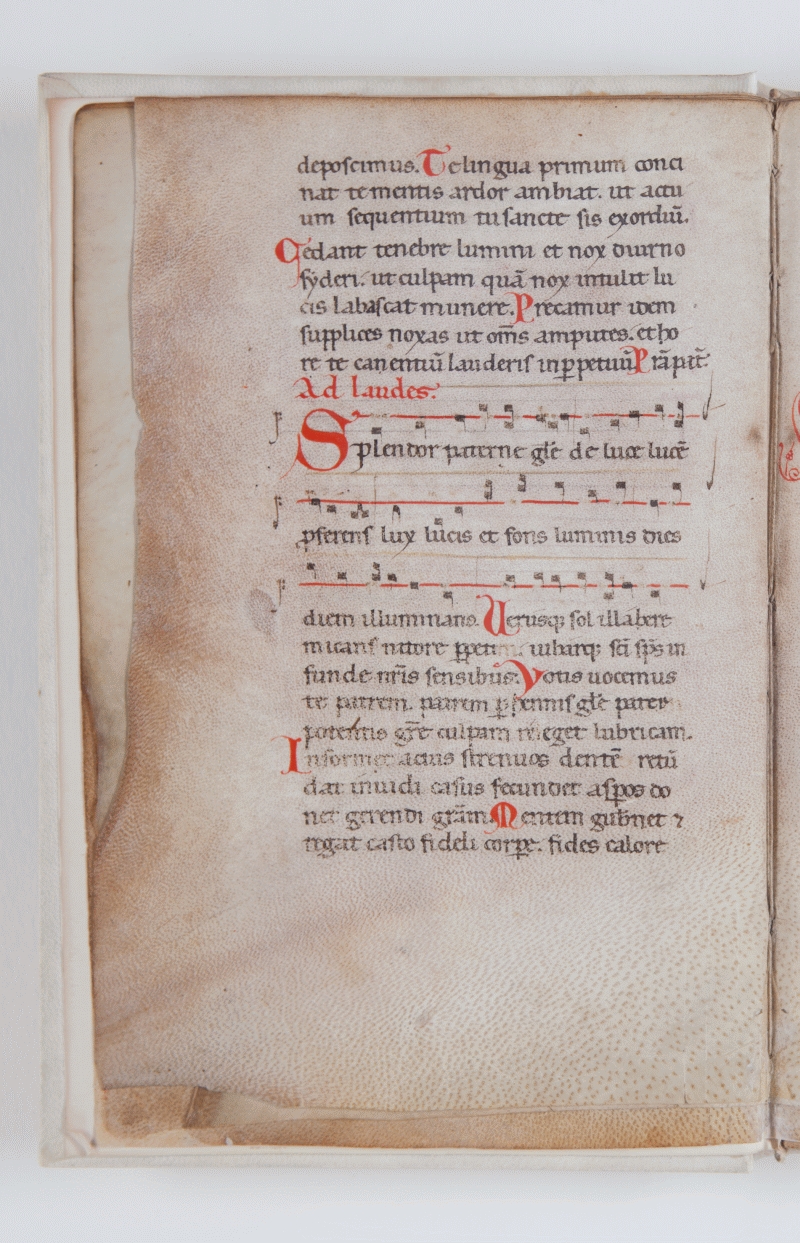 deposcimus. Te lingua primum conci
nat te mentis ardor ambiat. ut actu
um sequentium tu sancte sis exordiū.
Cedant tenebre lumini et nox diurno
syderi. ut culpam quā nox intulit lu
cis labascat munere. Precamur idem
supplices noxas ut om̄s amputes. et ho
re te canentiū lauderis in ꝑpetuū P̄rā pat̄.
Ad laudes.
Splendor paterne glē de luce lucē
ꝓferens lux lucis et fons luminis dies
diem illuminans. Uerusqꝫ sol illabere
micans nitore ꝑpeti iubarqꝫ sc̄i sp̄s in
funde nr̄is sensibus. Votis uocemus
te patrem. patrem ꝑhennis glē pater
potentis gr̄e culpam releget lubricam.
Informet actus strenuos dentē retū
dat inuidi casus secundet asꝑos do
net gerendi grām Mentem gub̄net ⁊
regat casto fideli corꝑe. fides calore